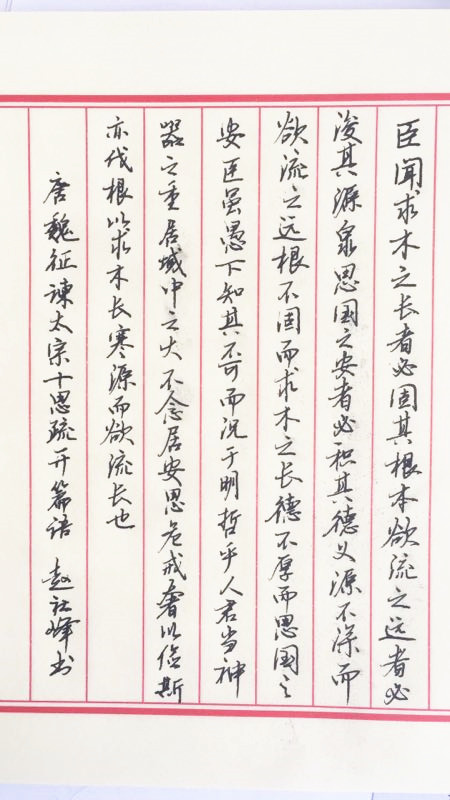 臣闻求木之长者必固其根本欲流之远者必
浚其源泉思国之安者必积其德义源不深而
欲流之远根不固而求木之长德不厚而思国之
安臣虽愚下知其不可而况于明哲乎人君当神
器之重居域中之大不念居安思危戒奢以俭斯
亦伐根以求木长塞源而欲流长也
唐魏征谏太宗十思疏开篇语 赵社峰书